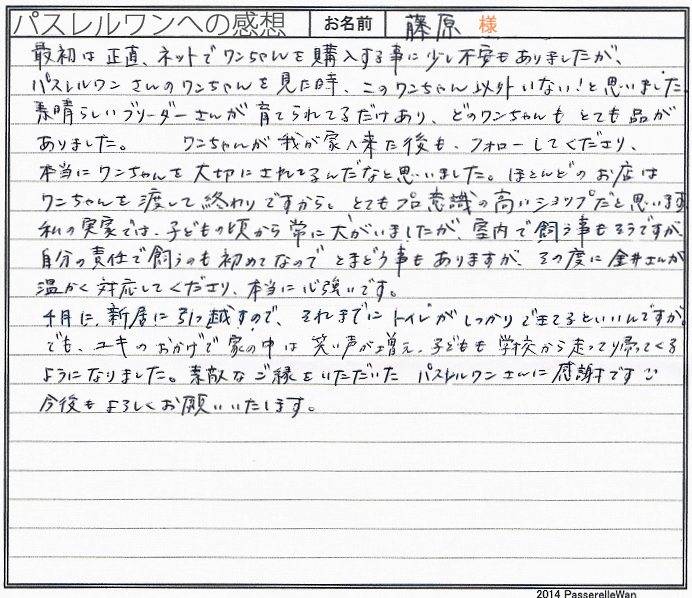 パスレルワンへの感想 お名前 藤原 様
最初は正直、ネットでワンちゃんを購入する事に少し不安もありましたが、
パスレルワンさんのワンちゃんを見た時、このワンちゃん以外いない!と思いました。
素晴らしいブリーダーさんが育てられてるだけあり、どのワンちゃんもとても品が
ありました。 ワンちゃんが我が家へ来た後も、フォローしてくださり、
本当にワンちゃんを大切にされてるんだなと思いました。ほとんどのお店は
ワンちゃんを渡して終わりですから。とてもプロ意識の高いショップだと思います。
私の実家では、子どもの頃から常に犬がいましたが、室内で飼う事もそうですが、
自分の責任で飼うのも初めてなので とまどう事もありますが、その度に金井さんが
温かく対応してくださり、本当に心強いです。
4月に、新居に引っ越すので、それまでにトイレがしっかりできてるといいんですが。
でも、ユキのおかげで家の中は笑い声が増え、子どもも学校から走ってり帰ってくる
ようになりました。素敵なご縁をいただいた パスレルワンさんに感謝です
今後もよろしくお願いいたします。
2014 PasserelleWan